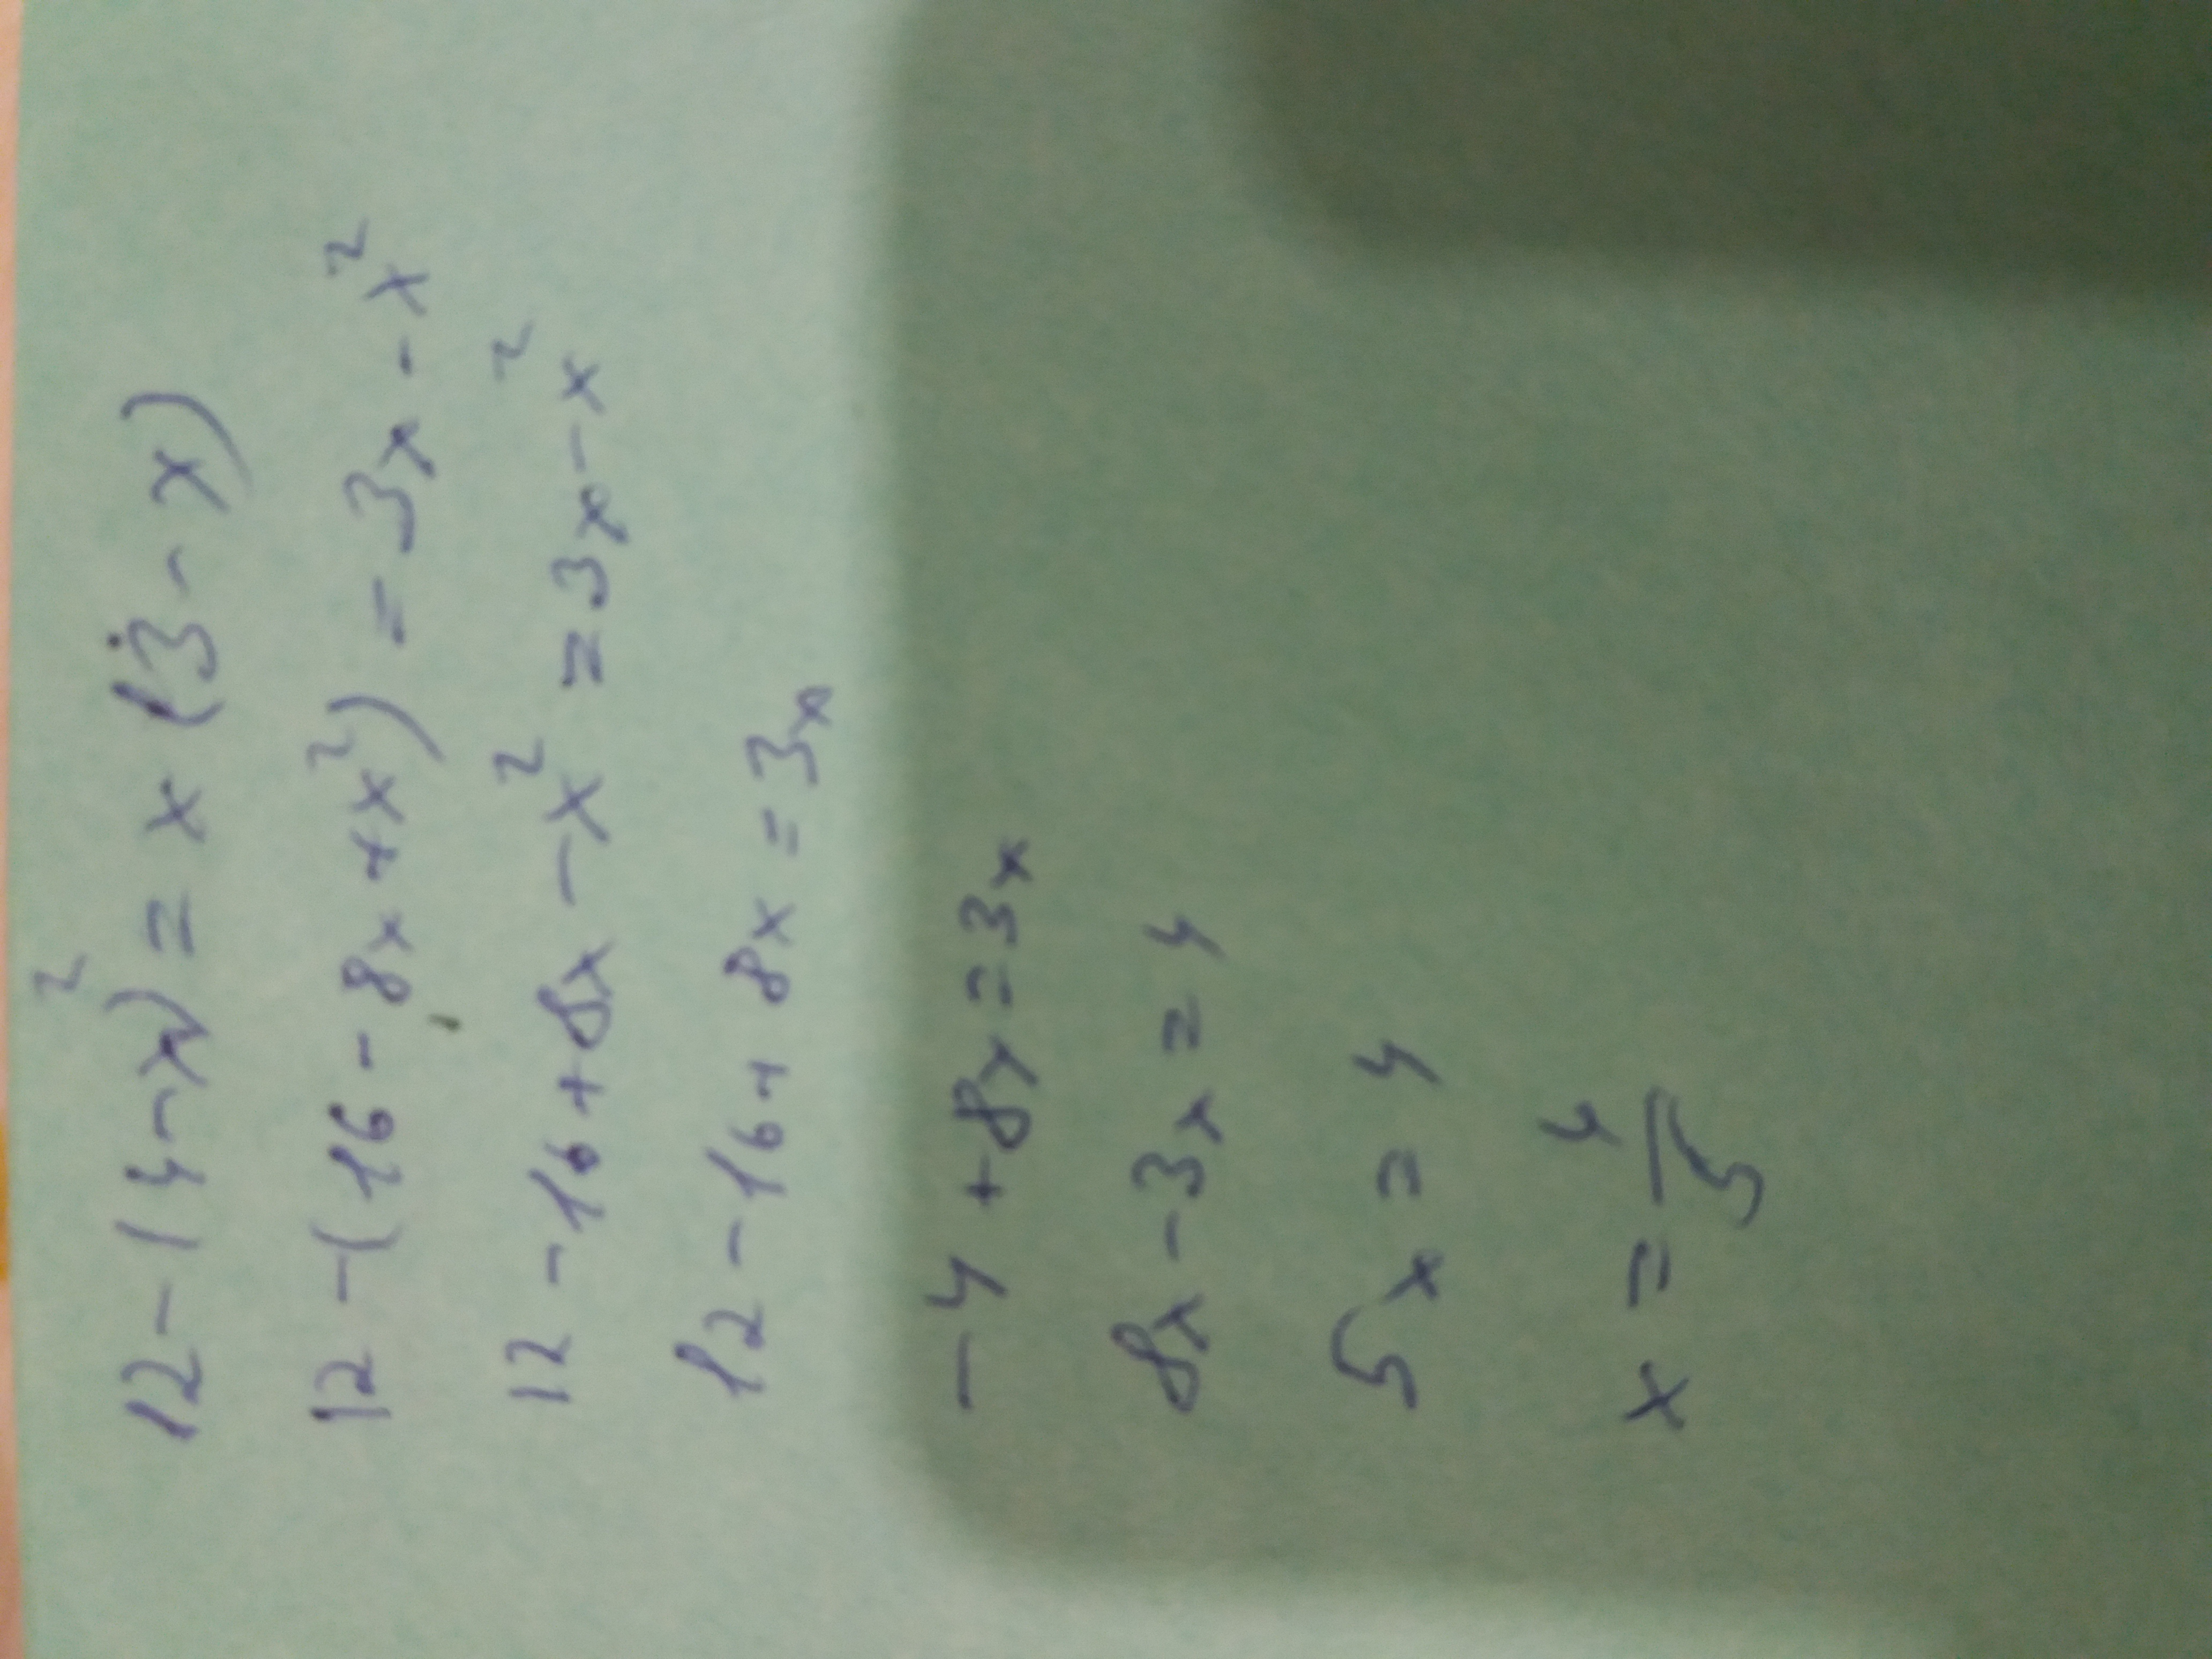 12 - (4-x)² = x (3 - x)
12 - (16 - 8x + x²) = 3x - x²
12 - 16 + 8x - x² = 3x - x²
12 - 16 + 8x = 3x
- 4 + 8x = 3x
8x - 3x = 4
5x = 4
x = 4/5